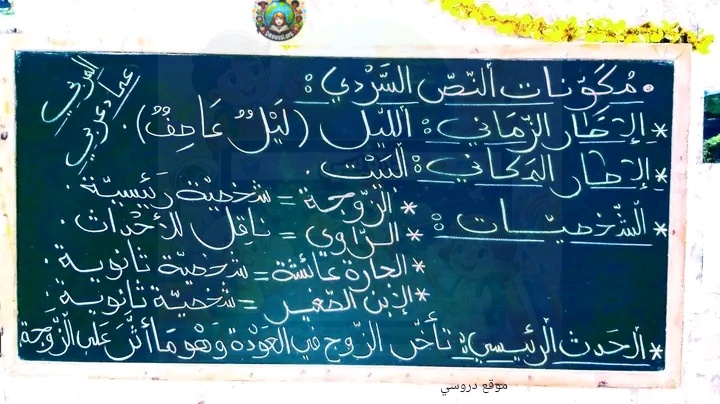 • مُكَوِّنات النّصّ السَّرْدي :
* الإطار الزّماني : اللّيل (لَيْلٌ عَاصِفٌ).
* الإطار المكاني : البَيْت.
* الشّخصيّات :
* الزّوجة = شخصيّة رَئيسيّة.
* الرّاوي = ناقِل للأحْداث.
* الجارة عائشة = شخصيّة ثانوية.
* الإبن الصّغير = شخصيّة ثانويّة.
* الحَدث الرّئيسي : تأخّر الزّوج في العَوْدة وَهْوَ مَا أثّرَ على الزّوجة
المربي
عماد عربي
موقع دروسي